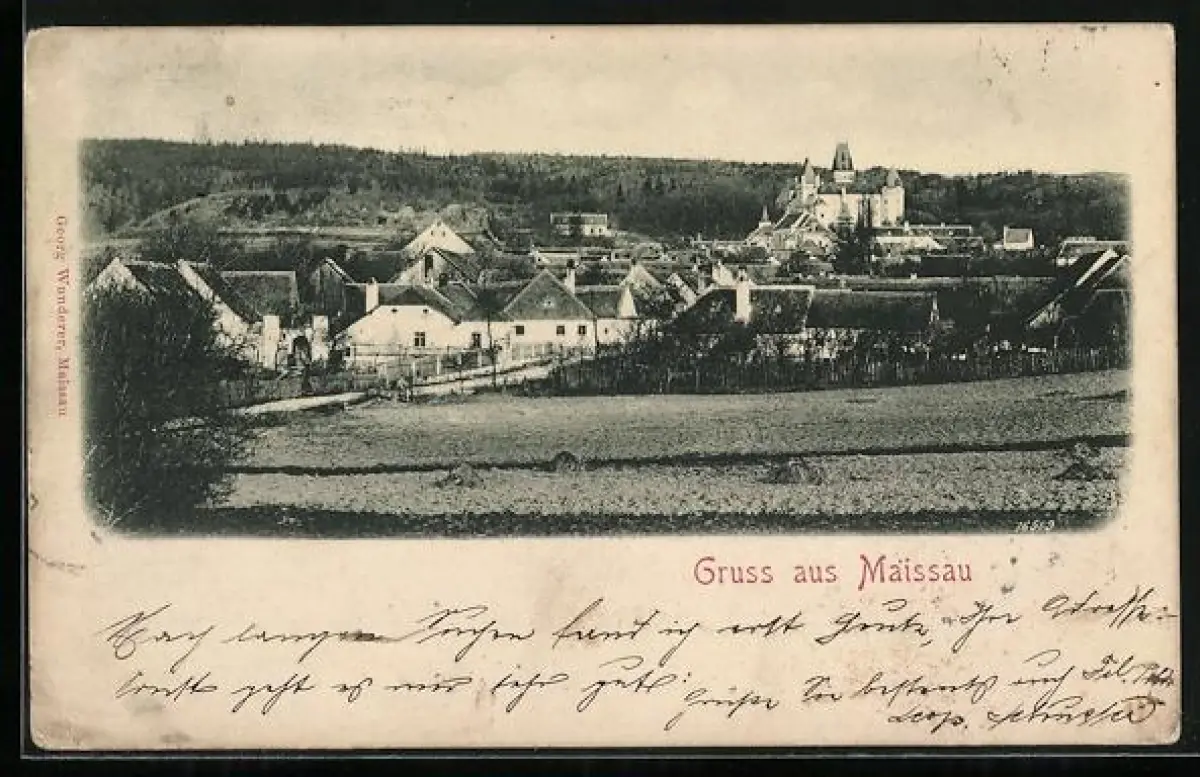 Georg Wunderer, Maissau
76569
Gruss aus Maissau
Nach langem Suchen fand ich erst heute, Ihre Adresse.
sonst geht es mir sehr gut.
Grüße Sie bestens auch
Leop.